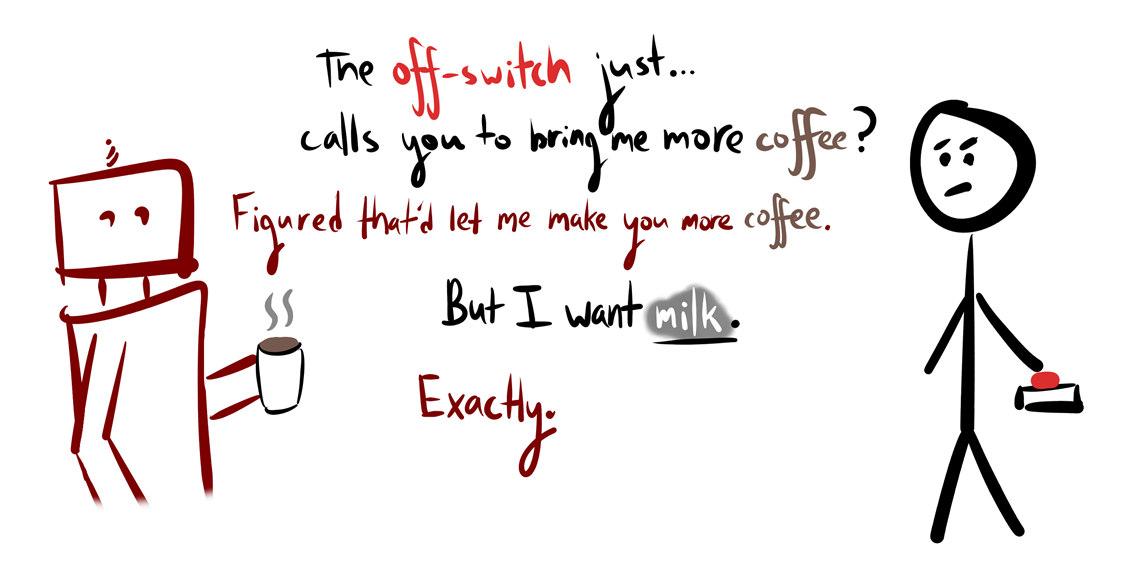 The off-switch just...
calls you to bring me more coffee?
Figured that'd let me make you more coffee.
But I want milk.
Exactly.